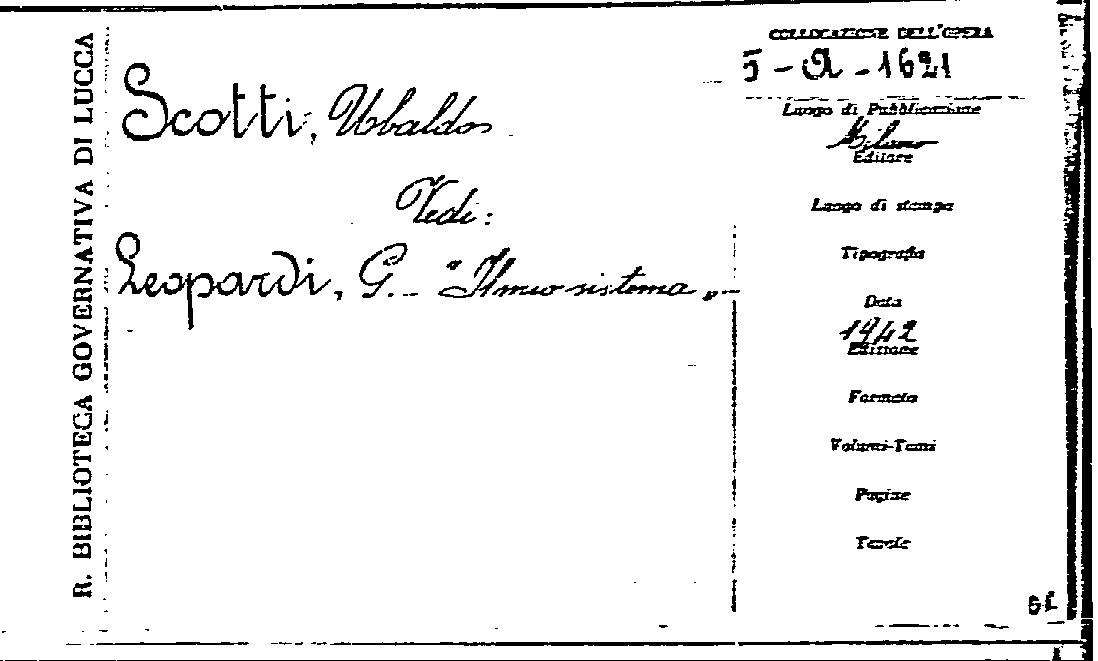 R. BIBLIOTECA GOVERNATIVA DI LUCCA
Scotti, Ubaldo
Vedi:
Leopardi, G. - "Il mio sistema"
COLLOCAZIONE DELL'OPERA
5 - A - 1621
Luogo di Pubblicazione
Milano
Editore
Luogo di stampa
Tipografia
Data
1942
Edizione
Formato
Volumi-Tomi
Pagine
Tavole